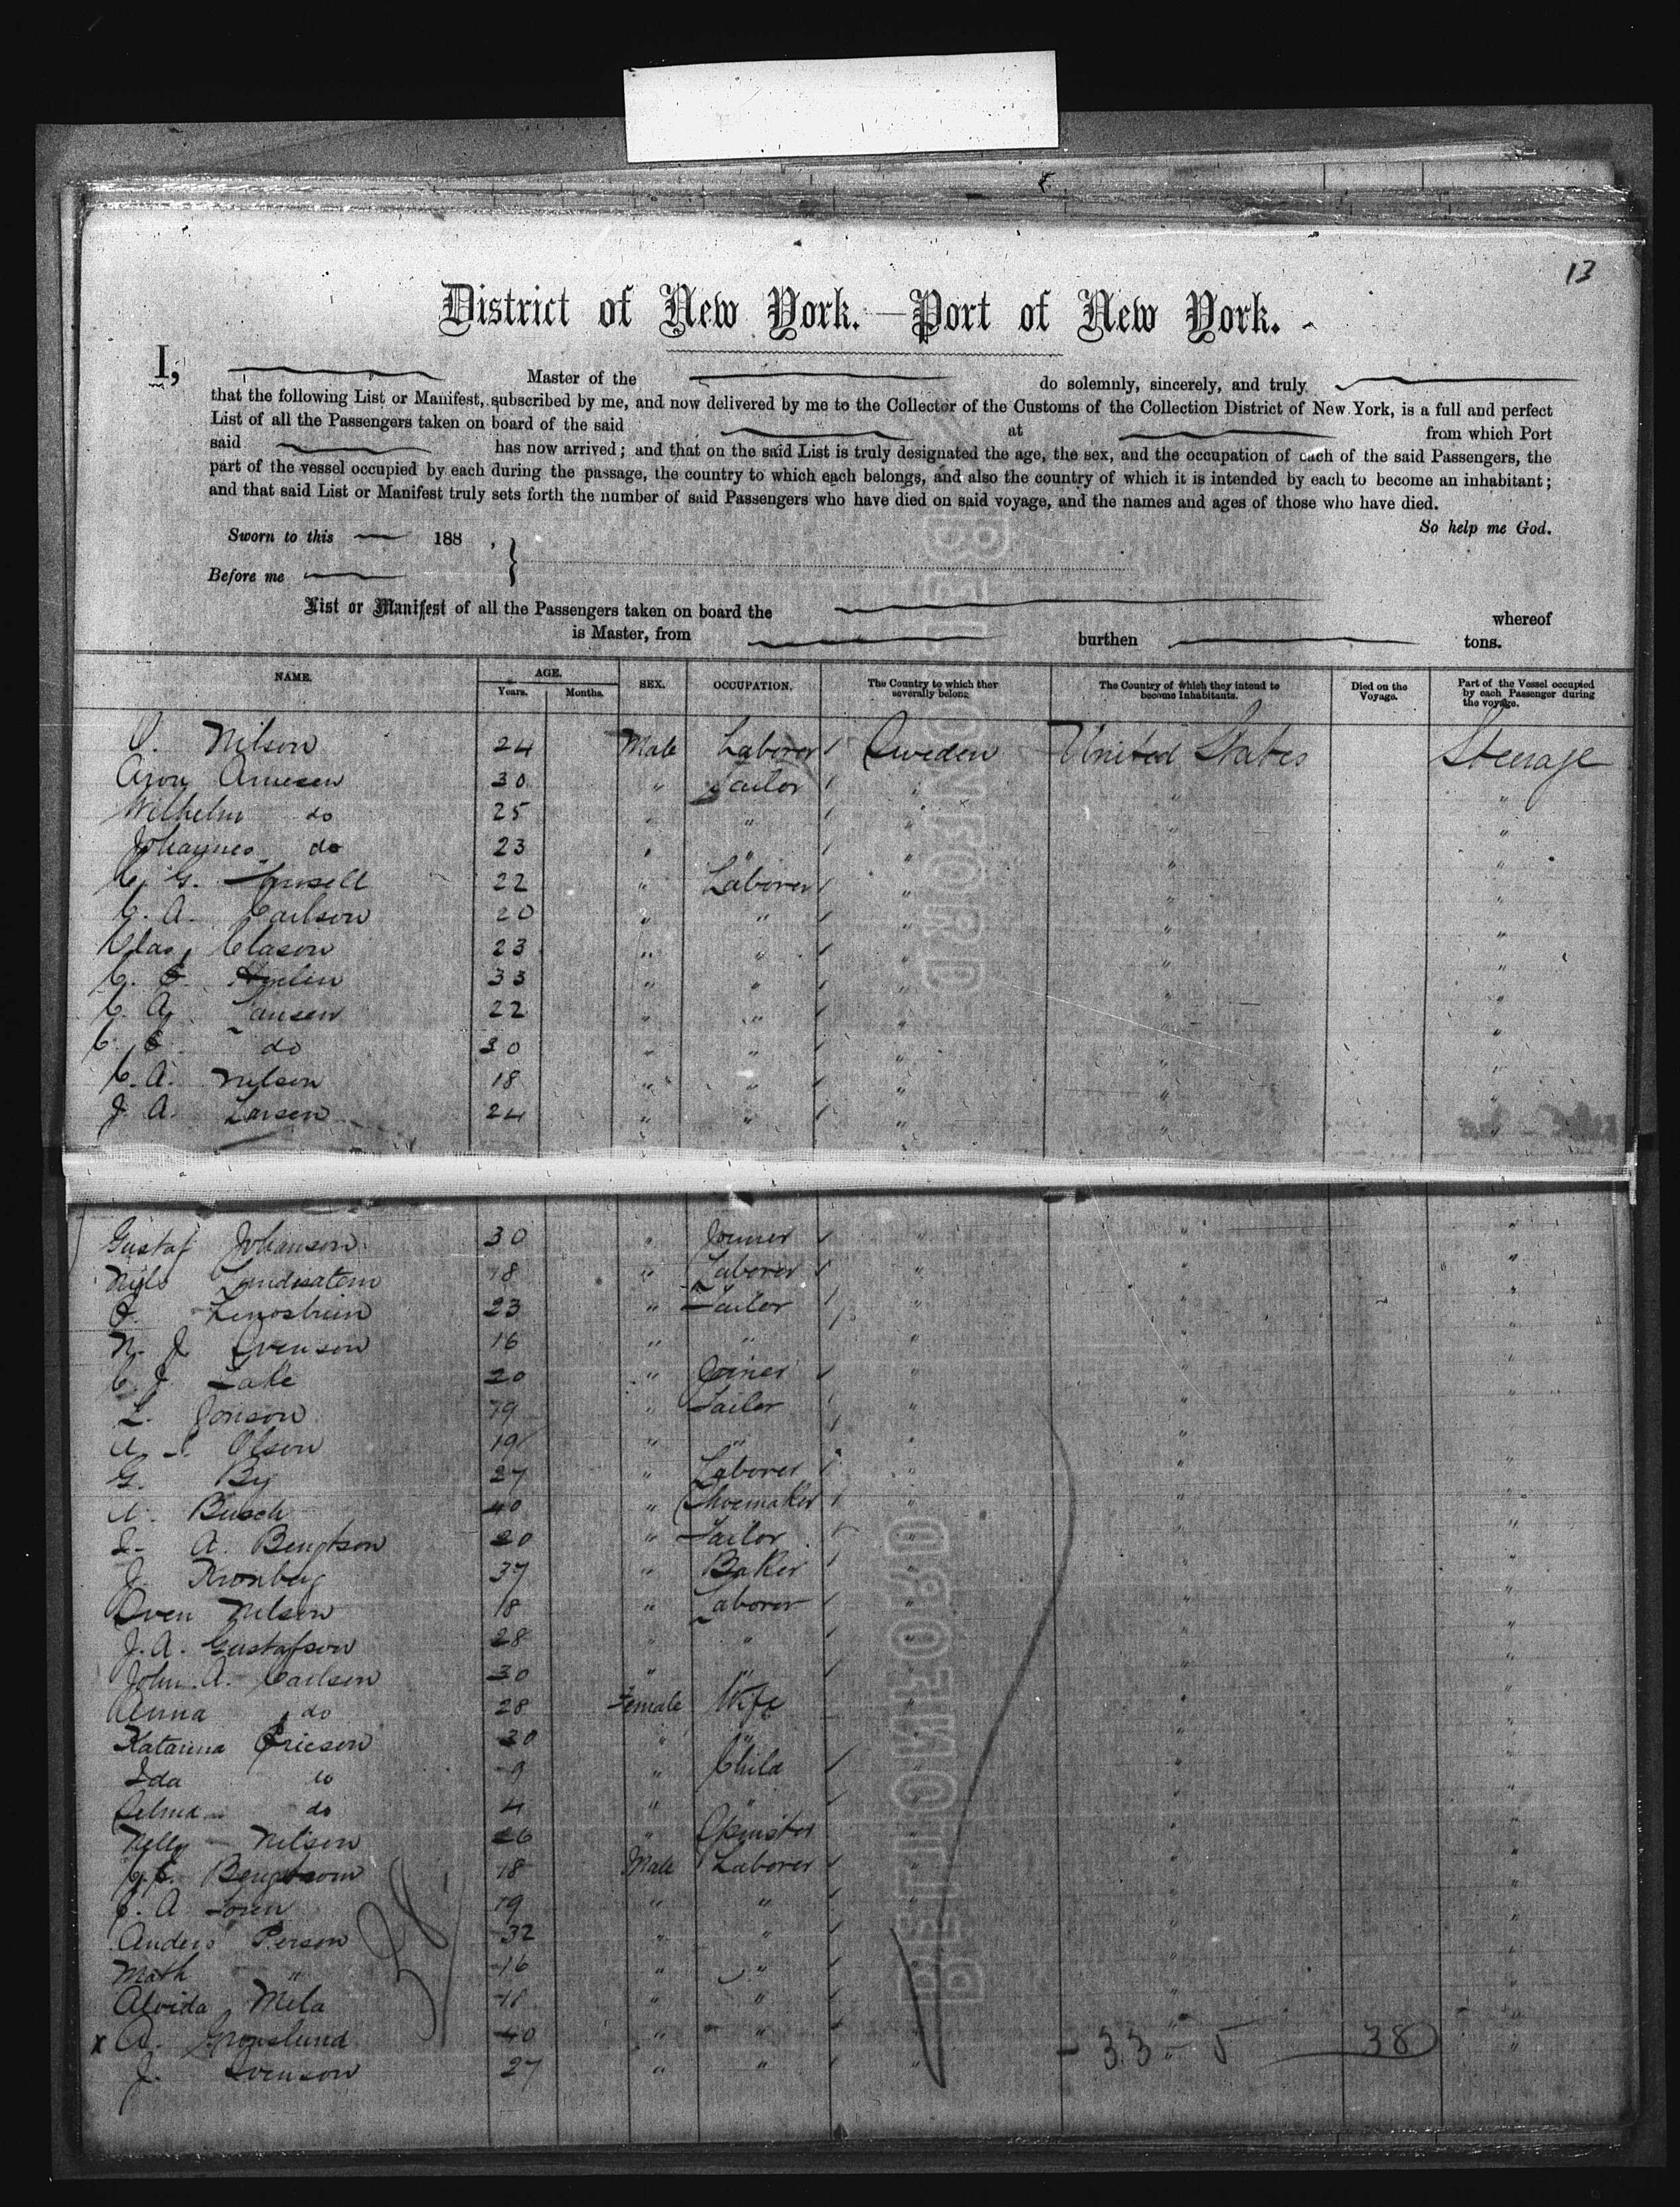 13
District of New York.—Port of New York.
I, Master of the do solemnly, sincerely, and truly
that the following List or Manifest, subscribed by me, and now delivered by me to the Collector of the Customs of the Collection District of New York, is a full and perfect
List of all the Passengers taken on board of the said at from which Port
said has now arrived; and that on the said List is truly designated the age, the sex, and the occupation of each of the said Passengers, the
part of the vessel occupied by each during the passage, the country to which each belongs, and also the country of which it is intended by each to become an inhabitant;
and that said List or Manifest truly sets forth the number of said Passengers who have died on said voyage, and the names and ages of those who have died.
So help me God.
Sworn to this 188 ,
Before me
List or Manifest of all the Passengers taken on board the whereof
is Master, from burthen tons.
NAME. AGE. Years. Months. SEX. OCCUPATION. The Country to which they severally belong. The Country of which they intend to become Inhabitants. Died on the Voyage. Part of the Vessel occupied by each Passenger during the voyage.
Nilson 24 Male Laborer Sweden United States Steerage
Aron 30 " Tailor " " "
Wilhelm do 25 " " " " "
Johannes do 23 " " " " "
C. G. 22 " Laborer " " "
C. A. Carlson 20 " " " " "
Clas Clason 23 " " " " "
C. 33 " " " " "
C. A. Jansen 22 " " " " "
C. do 30 " " " " "
C. A. Nilson 18 " " " " "
J. A. Larsen 24 " " " " "
Gustaf Johanson 30 " Joiner " " "
Nils 18 " Laborer " " "
23 " Tailor " " "
N. J. Svenson 16 " " " " "
C. J. 20 " Joiner " " "
L. Jonson 19 " Tailor " " "
A. Olson 19 " " " " "
G. By 27 " Laborer " " "
A. Busch 40 " Shoemaker " " "
A. Bengtson 20 " Tailor " " "
J. Kronberg 37 " Baker " " "
Sven Nilson 18 " Laborer " " "
J. A. Gustafson 28 " " " " "
John A. Carlsen 30 " " " " "
Anna do 28 Female Wife " " "
Katarina Ericson 30 " " " " "
Ida do 9 " Child " " "
Selma do 4 " " " " "
Nelly Nilson 26 " Spinster " " "
Bengtsom 18 Male Laborer " " "
C. A. 19 " " " " "
Anders Person 32 " " " " "
Math " 16 " " " " "
Alvida Mela 18 " " " " "
x A. Gronslund 40 " " " " "
J. Svenson 27 " " " " "
33 - 5 38
BEFLIONFORD